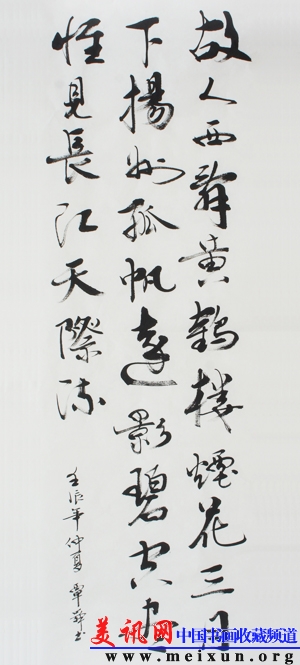 故人西辭黄鶴樓煙花三月
下揚州孤帆遠影碧空尽
惟見長江天際流
壬辰年仲夏覃书
美讯网 中国书画收藏频道
www.meixun.org